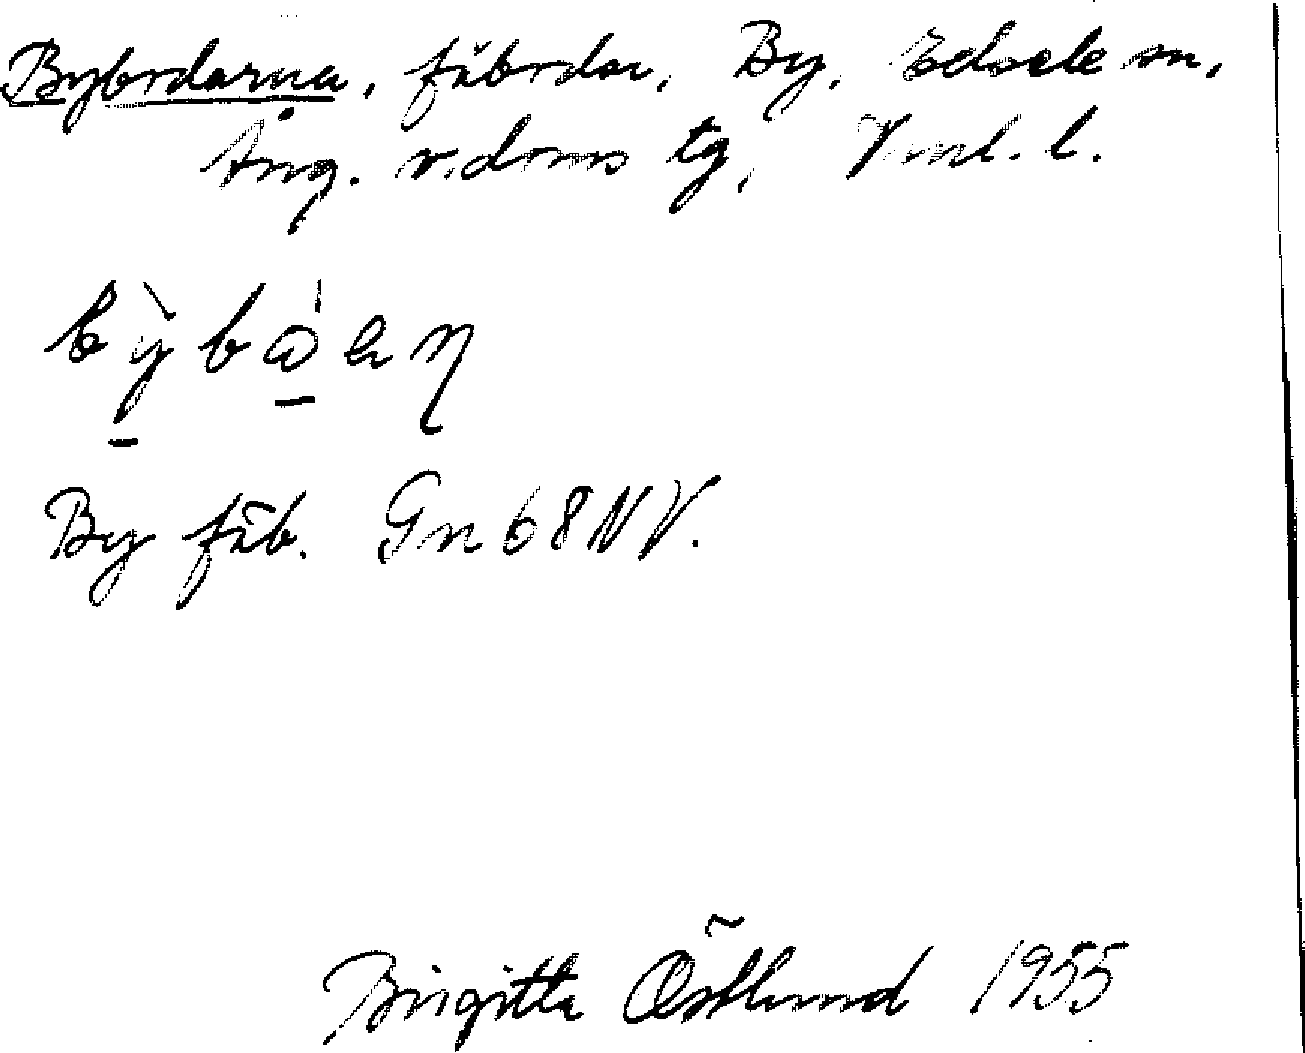 Bybodarna, fäbodar, By, Edsele sn,
Ång. v. doms tg, Vnl. l.
By fäb. Gn 68 NV.
Birgitta Östlund 1955